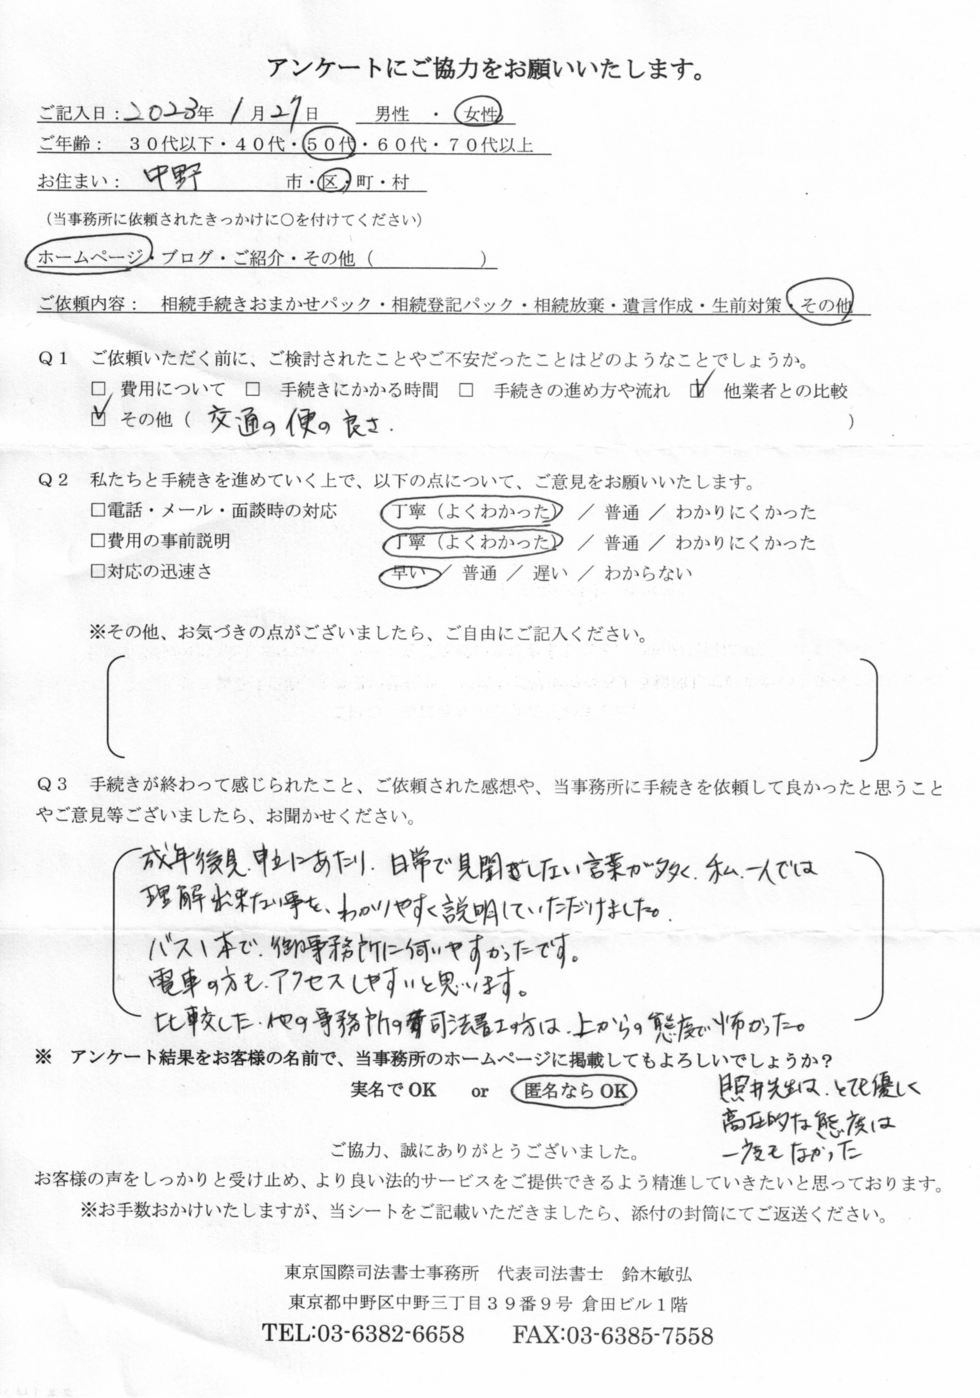 アンケートにご協力をお願いいたします。
ご記入日：2023年 1月27日 男性 ・ 女性
ご年齢： ３０代以下・４０代・５０代・６０代・７０代以上
お住まい： 中野 市・区・町・村
（当事務所に依頼されたきっかけに○を付けてください）
ホームページ・ブログ・ご紹介・その他（ ）
ご依頼内容： 相続手続きおまかせパック・相続登記パック・相続放棄・遺言作成・生前対策・その他
Ｑ１ ご依頼いただく前に、ご検討されたことやご不安だったことはどのようなことでしょうか。
□ 費用について □ 手続きにかかる時間 □ 手続きの進め方や流れ ☑ 他業者との比較
☑ その他（ 交通の便の良さ． ）
Ｑ２ 私たちと手続きを進めていく上で、以下の点について、ご意見をお願いいたします。
□電話・メール・面談時の対応 丁寧（よくわかった） ／ 普通 ／ わかりにくかった
□費用の事前説明 丁寧（よくわかった） ／ 普通 ／ わかりにくかった
□対応の迅速さ 早い ／ 普通 ／ 遅い ／ わからない
※その他、お気づきの点がございましたら、ご自由にご記入ください。
Ｑ３ 手続きが終わって感じられたこと、ご依頼された感想や、当事務所に手続きを依頼して良かったと思うこと
やご意見等ございましたら、お聞かせください。
成年後見、申立にあたり、日常で見聞きしない言葉が多く、私、一人では
理解出来ない事を、わかりやすく説明していただけました。
バス1本で、御事務所に伺いやすかったです。
電車の方も、アクセスしやすいと思います。
比較した、他の事務所の司法書士の方は、上からの態度で怖かった。
※ アンケート結果をお客様の名前で、当事務所のホームページに掲載してもよろしいでしょうか？
実名でOK or 匿名ならOK
照井先生は、とても優しく
高圧的な態度は
一度もなかった
ご協力、誠にありがとうございました。
お客様の声をしっかりと受け止め、より良い法的サービスをご提供できるよう精進していきたいと思っております。
※お手数おかけいたしますが、当シートをご記載いただきましたら、添付の封筒にてご返送ください。
東京国際司法書士事務所 代表司法書士 鈴木敏弘
東京都中野区中野三丁目３９番９号 倉田ビル１階
TEL:03-6382-6658 FAX:03-6385-7558